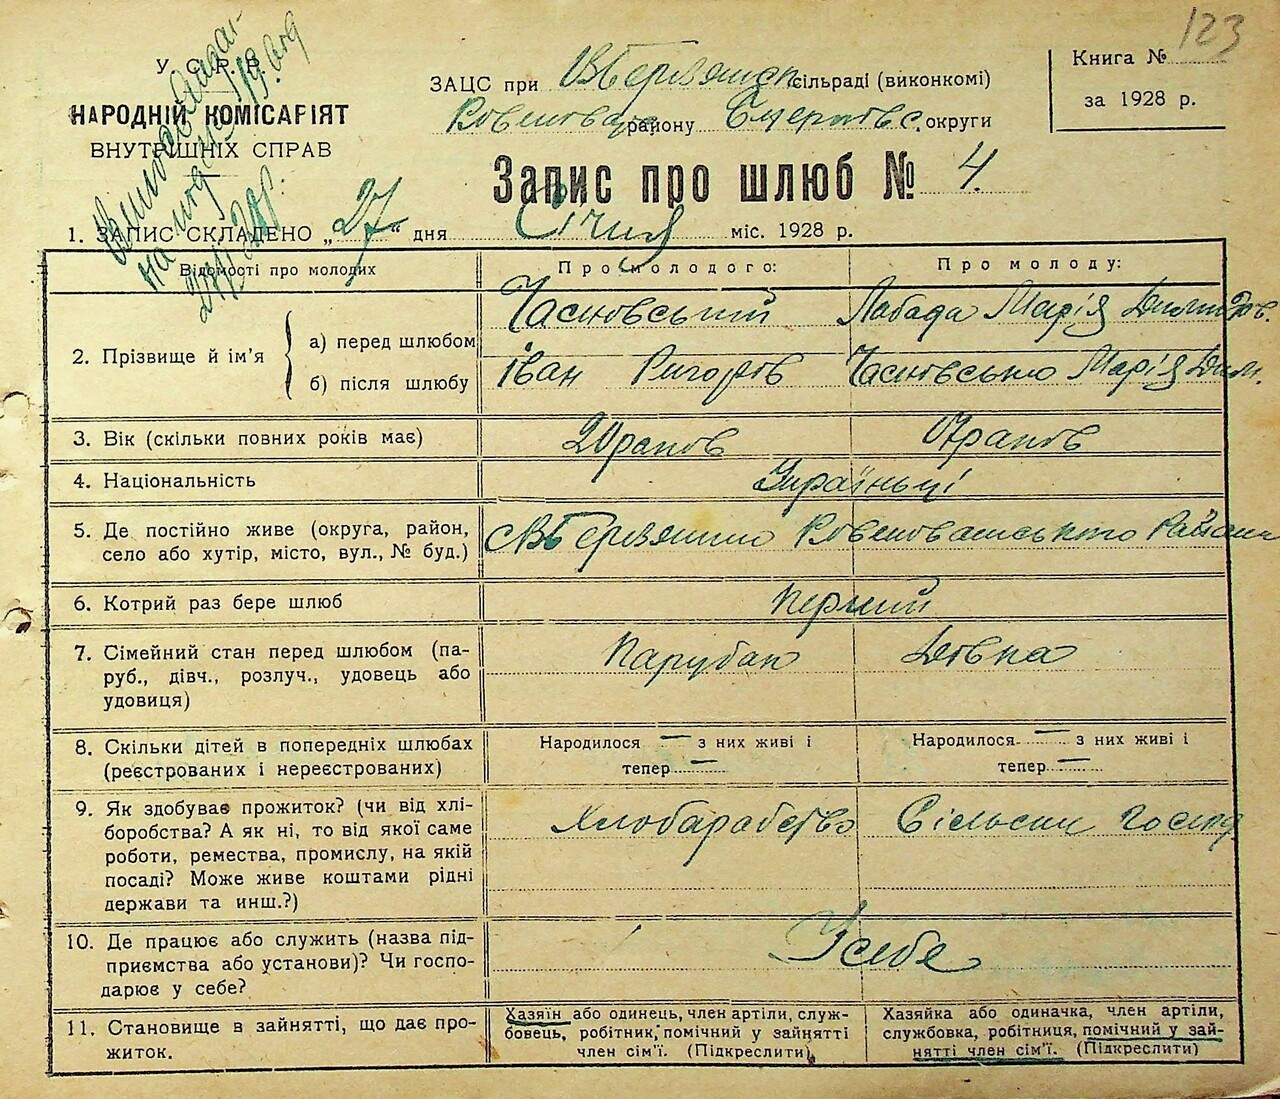 123
У.С.Р.Р.
НАРОДНІЙ КОМІСАРІЯТ
ВНУТРІШНІХ СПРАВ
ЗАЦС при сільраді (виконкомі)
району округи
Книга №
за 1928 р.
Запис про шлюб № 4.
1. ЗАПИС СКЛАДЕНО „27" дня Січня міс. 1928 р.
Відомості про молодих
Про молодого:
Про молоду:
2. Прізвище й ім'я
а) перед шлюбом
б) після шлюбу
Часновський
Іван Ригоров
Лабада Марія
Марія Дим.
3. Вік (скільки повних років має)
20 раков
раков
4. Національність
Українці
5. Де постійно живе (округа, район,
село або хутір, місто, вул., № буд.)
6. Котрий раз бере шлюб
Перший
7. Сімейний стан перед шлюбом (па-
руб., дівч., розлуч., удовець або
удовиця)
Парубак
Дівка
8. Скільки дітей в попередніх шлюбах
(реєстрованих і нереєстрованих)
Народилося — з них живі і
тепер —
Народилося — з них живі і
тепер —
9. Як здобуває прожиток? (чи від хлі-
боробства? А як ні, то від якої саме
роботи, ремества, промислу, на якій
посаді? Може живе коштами рідні
держави та инш.?)
Хлобарабство
Сільськи госпд
10. Де працює або служить (назва під-
приємства або установи)? Чи госпо-
дарює у себе?
У себе
11. Становище в зайнятті, що дає про-
житок.
Хазяїн або одинець, член артіли, служ-
бовець, робітник, помічний у зайнятті
член сім'ї. (Підкреслити)
Хазяйка або одиначка, член артіли,
службовка, робітниця, помічний у зай-
нятті член сім'ї. (Підкреслити)